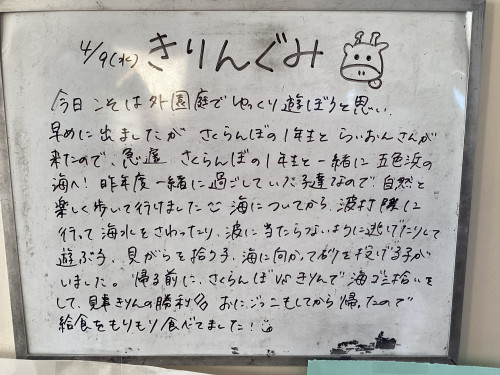 4/9(水) きりんぐみ
今日こそは外園庭でゆっくり遊ぼうと思い
早めに出ましたが さくらんぼの1年生と らいおんさんが
来たので、急遽 さくらんぼの1年生と一緒に 五色浜の
海へ! 昨年度一緒に過ごしていた子達なので、自然と
楽しく歩いて行けました 海についてから、波打際に
行って海水をさわったり、波に当たらないように逃げたりして
遊ぶ子、貝がらを拾う子、海に向かって を投げる子が
いました。帰る前に、さくらんぼVSきりんで 海ゴミ拾いを
して、見事きりんの勝利 おにごっこもしてから帰ったので
給食をもりもり食べてました!